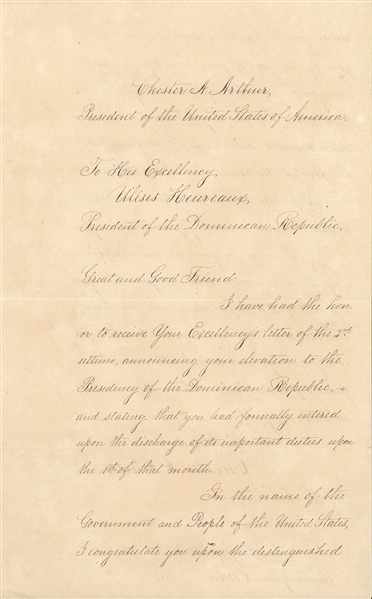 Chester A. Arthur,
President of the United States of America.
To His Excellency,
Ulises Heureaux,
President of the Dominican Republic.
Great and Good Friend:
I have had the hon-
or to receive Your Excellency's letter of the 2d
ultimo, announcing your elevation to the
Presidency of the Dominican Republic,
and stating that you had formally entered
upon the discharge of its important duties upon
the 1st of that month.
In the name of the
Government and People of the United States,
I congratulate you upon the distinguished